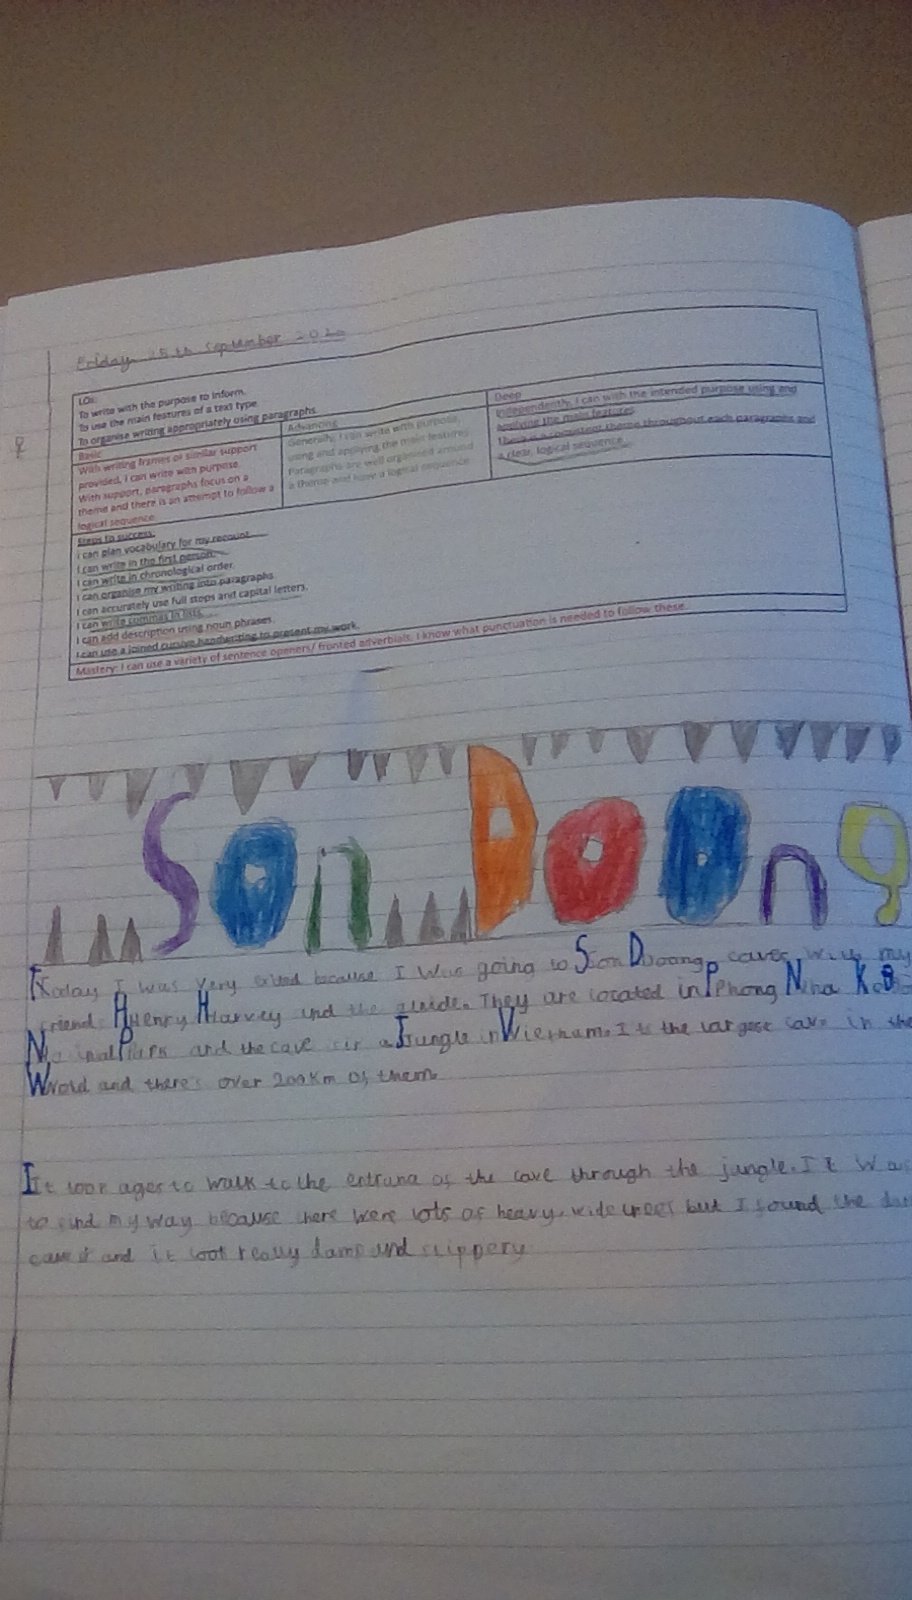 Friday 25th September 2020
LOs:
To write with the purpose to inform.
To use the main features of a text type
To organise writing appropriately using paragraphs
Basic
With writing frames or similar support
provided, I can write with purpose
With support, paragraphs focus on a
theme and there is an attempt to follow a
logical sequence
Advancing
Generally, I can write with purpose,
using and applying the main features
Paragraphs are well organised around
a theme and have a logical sequence
Deep
Independently, I can with the intended purpose using and
applying the main features
There is a consistent theme throughout each paragraphs and
a clear, logical sequence
Steps to success:
I can plan vocabulary for my recount
I can write in the first person.
I can write in chronological order.
I can organise my writing into paragraphs
I can accurately use full stops and capital letters.
I can write commas in lists.
I can add description using noun phrases.
I can use a joined cursive handwriting to present my work.
Mastery: I can use a variety of sentence openers/ fronted adverbials. I know what punctuation is needed to follow these.
Son Doong
Today I was very because I was going to Son Doong caves with my
friends Henry Harvey and the They are located in Phong Nha
and the cave a Jungle in Vietnam. It the largest cave in the
and there's over 200km of them.
It took ages to walk to the of the cave through the jungle. It was
to find my way because there were lots of heavy, wide trees but I found the
and it look really damp and slippery